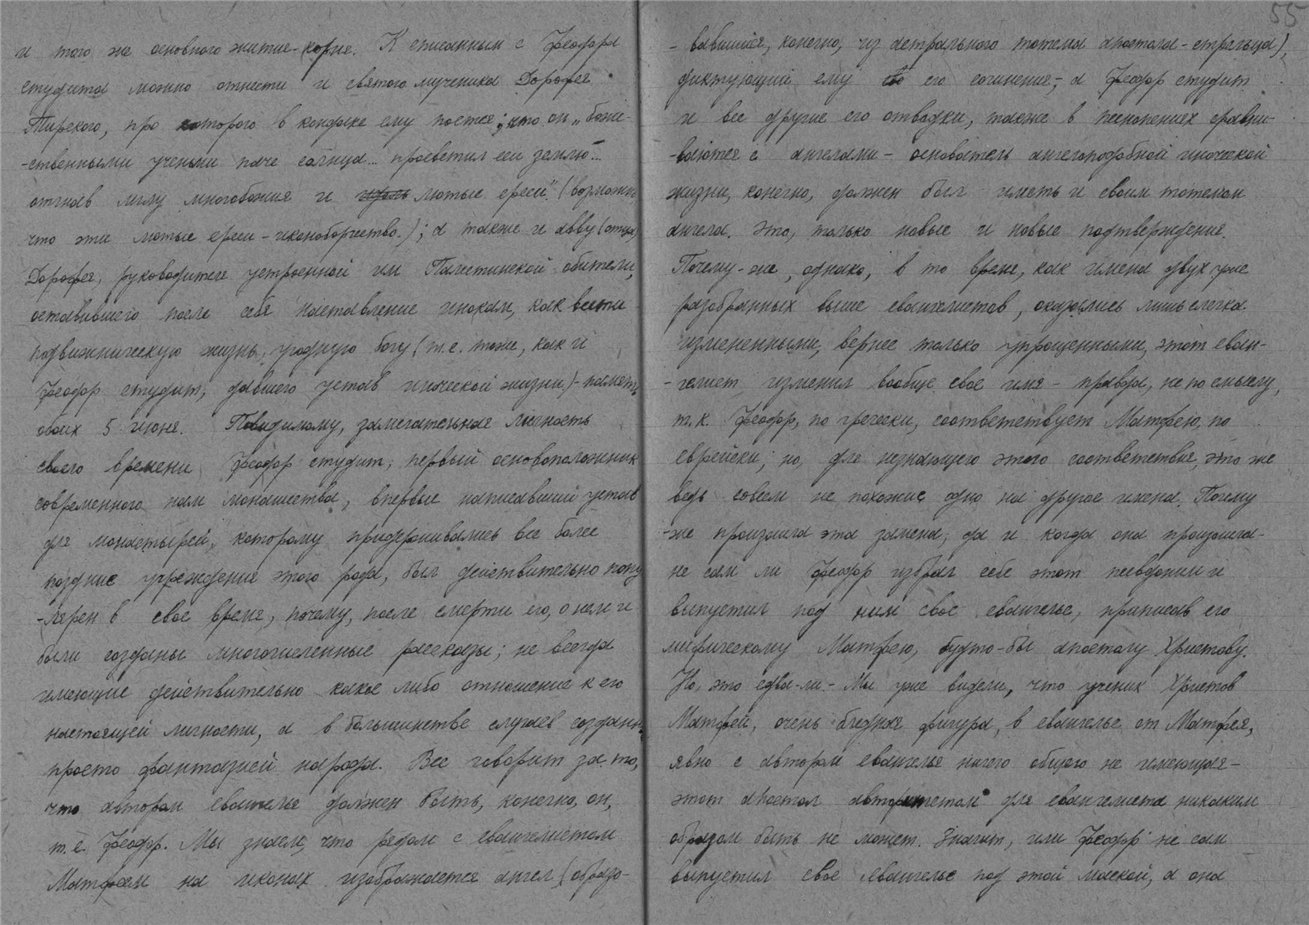 и того же основного житие-корня. К списанным с Феодра
студита можно отнести и святого мученика Дорофея
Тирского, про которого в кондаке ему поется; что он „боже-
-ственными ученьми паче солнца... просветил еси землю...
отгнав мглу многобожия и лютые ереси" (возможно
что эти лютые ереси - иконоборчество.); а также и авву (отца)
Дорофея, руководителя устроенной им Палестинской обители,
оставившего после себя наставление инокам, как вести
подвижническую жизнь, угодную богу (т.е. тоже, как и
Феодр студит, давшего устав иноческой жизни) - память
обоих 5 июня. Повидимому, замечательная личность
своего времени Феодр студит, первый основоположник
современного нам монашества, впервые написавший устав
для монастырей, которому придерживались все более
поздние учреждения этого рода, был действительно попу-
-лярен в свое время, почему, после смерти его, о нем и
были созданы многочисленные рассказы; не всегда
имеющие действительно какое либо отношение к его
настоящей личности, а в большинстве случаев созданные
просто фантазией народа. Все говорит за-то,
что автором евангелья должен быть, конечно, он,
т.е. Феодр. Мы знаем, что рядом с евангелистом
Матфеем на иконах изображается ангел (образо-
55
- вавшийся, конечно, из астрального тотема апостола - стрельца),
диктующий ему его сочинение, - а Феодр студит
и все другие его отводки, также в песнопениях сравни-
-ваются с ангелами - основатель ангелоподобной иноческой
жизни, конечно, должен был иметь и своим тотемом
ангела. Это, только новые и новые подтверждения.
Почему-же, однако, в то время, как имена двух уже
разобранных выше евангелистов, оказались лишь слегка
измененными, вернее только упрощенными, этот еван-
-гелист изменил вообще свое имя - правда, не по смыслу,
т.к. Феодр, по гречески, соответствует Матфею, по
еврейски; но, для незнающего этого соответствия, это же
ведь совсем не похожие одно на другое имена. Почему
-же произошла эта замена, да и когда она произошла -
не сам ли Феодр избрал себе этот псевдоним и
выпустил под ним свое евангелье, приписав его
мифическому Матфею, будто-бы апостолу Христову.
Но, это едва-ли. - Мы уже видели, что ученик Христов
Матфей, очень бледная фигура, в евангелье от Матфея,
явно с автором евангелья ничего общего не имеющая -
этот апостол авторитетом для евангелиста никаким
образом быть не может. Значит, или Феодр не сам
выпустил свое евангелье под этой маской, а она